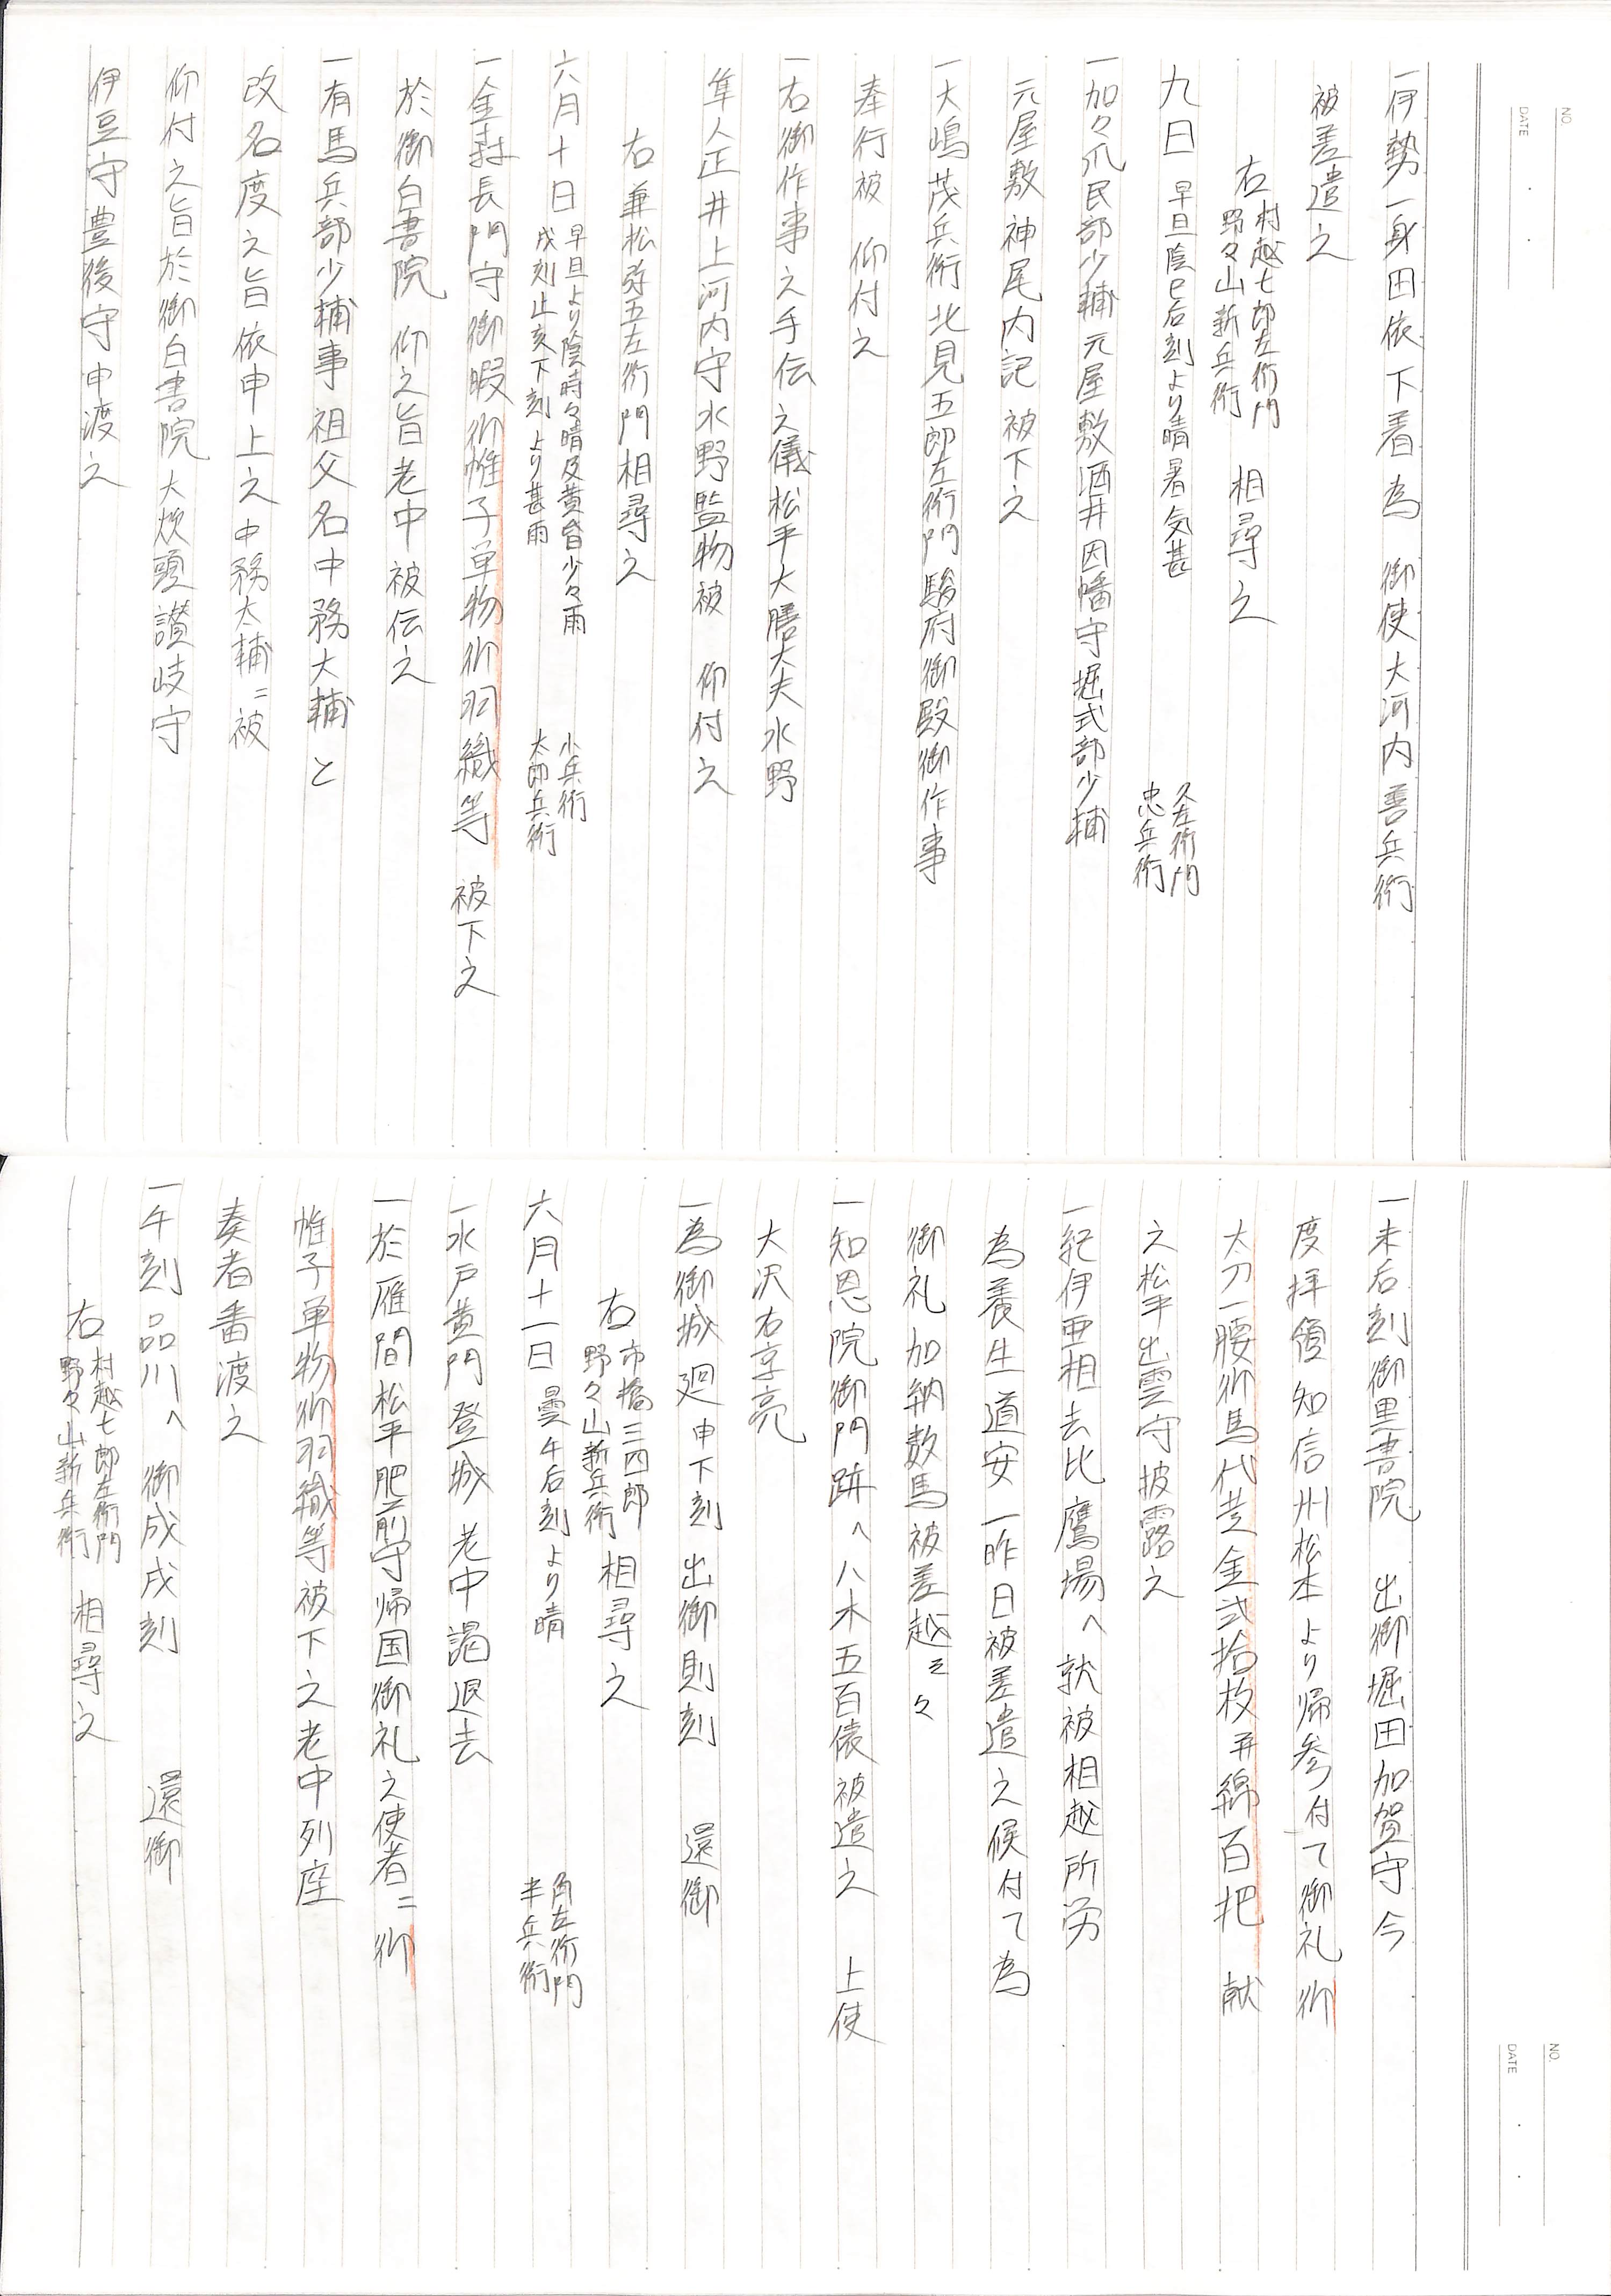 NO.
DATE
一伊勢一身田依下着為　御使大河内善兵衛
被差遣之
右 村越七郎左衛門
野々山新兵衛　相尋之
九日 早旦陰巳后刻より晴暑気甚　久左衛門
忠兵衛
一加々爪民部少輔元屋敷酒井因幡守堀式部少輔
元屋敷神尾内記被下之
一大嶋茂兵衛北見五郎左衛門駿府御殿御作事
奉行被　仰付之
一右御作事之手伝之儀松平大膳大夫水野
隼人正井上河内守水野監物被　仰付之
右兼松弥五左衛門相尋之
六月十日 早旦より陰時々晴及黄昏少々雨
戌刻止亥下刻より甚雨　小兵衛
太郎兵衛
一金森長門守御暇御帷子単物御羽織等　被下之
於御白書院　仰之旨老中被伝之
一有馬兵部少輔事祖父名中務大輔と
改名度之旨依申上之中務太輔ニ被
仰付之旨於御白書院大炊頭讃岐守
伊豆守豊後守申渡之
NO.
DATE
一未后刻御黒書院　出御堀田加賀守今
度拝領知信州松本より帰参付て御礼御
太刀一腰御馬代黄金弐拾枚并綿百把　献
之松平出雲守披露之
一紀伊亜相去比鷹場へ就被相越所労
為養生道安一昨日被差遣之候付て為
御礼加納数馬被差越云々
一知恩院御門跡へ八木五百俵被遣之　上使
大沢右京亮
一為御城廻申下刻　出御則刻　還御
右 市橋三四郎
野々山新兵衛　相尋之
六月十一日 曇午后刻より晴　角左衛門
半兵衛
一水戸黄門登城　老中謁退去
一於雁間松平肥前守帰国御礼之使者ニ御
帷子単物御羽織等被下之老中列座
奏者番渡之
一午刻品川へ　御成戌刻　還御
右 村越七郎左衛門
野々山新兵衛　相尋之